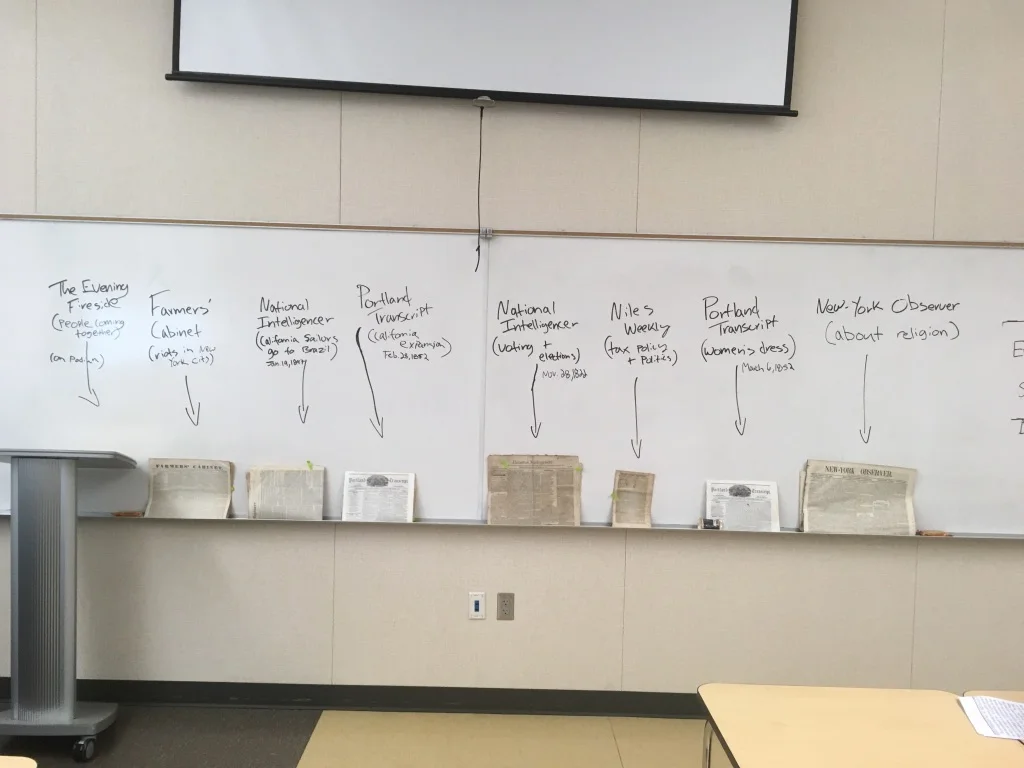 The Evening
Fireside
(People coming
together)
(on Podium)
Farmers'
Cabinet
(riots in New
York City)
National
Intelligencer
(California Sailors
go to Brazil)
Portland
Transcript
(California
expansion)
Feb. 28, 1852
National
Intelligencer
(voting +
elections)
Nov. 28, 1822
Niles
Weekly
(tax policy
+ Politics)
Portland
Transcript
(women's dress)
March 6, 1852
New-York Observer
(about religion)
FARMERS' CABINET
Portland Transcript
Portland Transcript
NEW-YORK OBSERVER